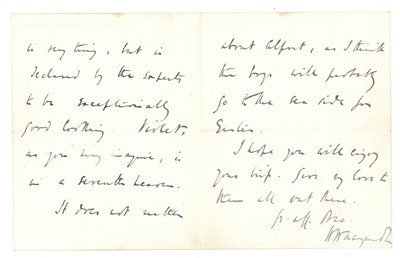 is very tiny, but is
declared by the experts
to be exceptionally
good looking. Violet,
as you may imagine, is
in a seventh heaven.
It does not matter
about Alfort, as I think
the boys will probably
go to the sea side for
Easter.
I hope you will enjoy
your trip. Give my love to
them all out there.
Yr. aff. Bro.